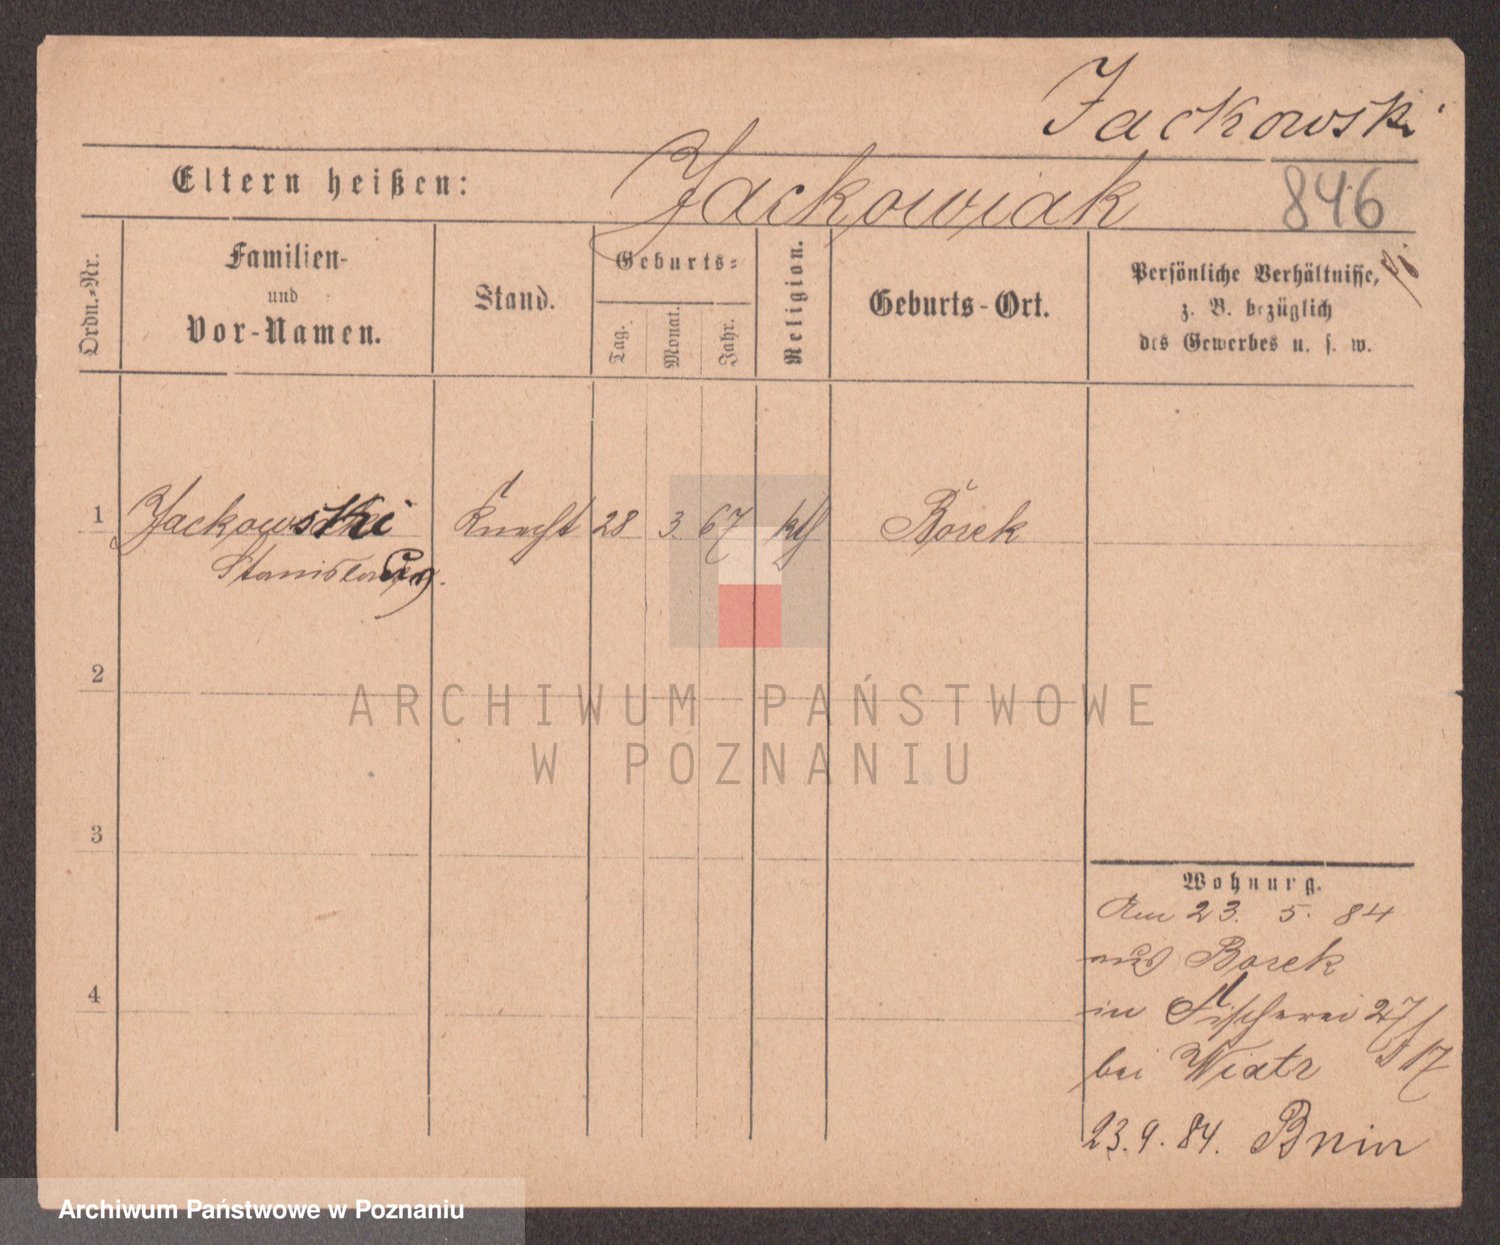 Jackowski
Eltern heißen: Jackowiak 846
Ordn.-Nr.
Familien-
und
Vor-Namen.
Stand.
Geburts-
Tag.
Monat.
Jahr.
Religion.
Geburts-Ort.
Persönliche Verhältnisse,
z. B. bezüglich
des Gewerbes u. s. w.
1 Jackowski Knecht 28 3. 67 kth Borek
Stanislaus
2
ARCHIWUM PAŃSTWOWE
W POZNANIU
3
4
Wohnung.
Am 23. 5. 84
aus Borek
in Fischerei 27/
bei Wiatr 17
23. 9. 84. Bnin
Archiwum Państwowe w Poznaniu